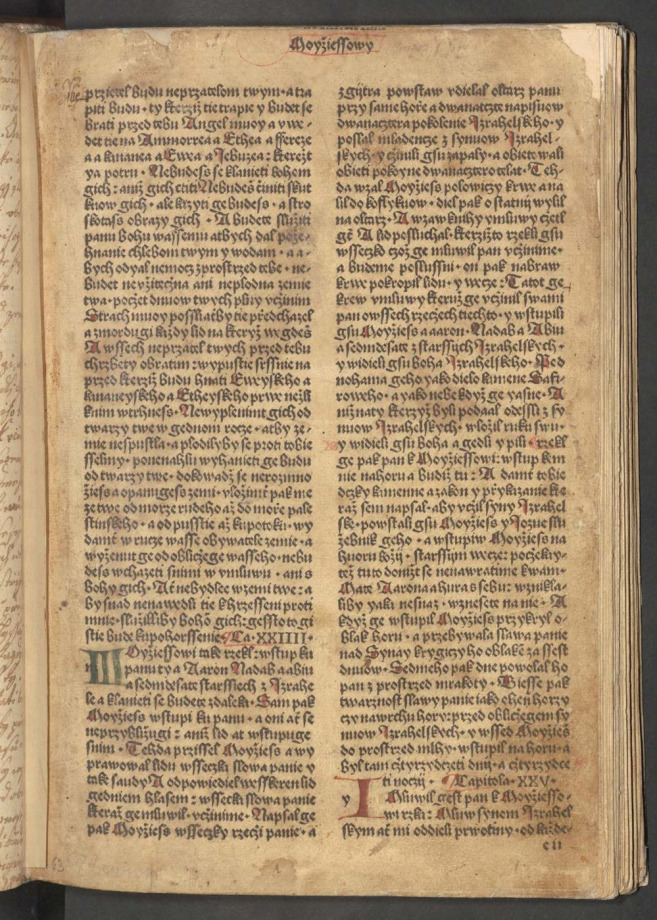 Moyžiessowy
przietel budu neprzatelom twym · a tra
piti budu · ty kterziž tie trapie y budet se
brati przed tebu Angel muoy a vwe-
det tie na Ammorrea a Ethea · a ffereze
a a kananea a Ewea a Jebuzea: kterežt
ya potru · Nebudess se klanieti bohem
gich: aniž gich ctiti Nebudeš činiti skut
kuow gich · ale kazyti ge budess · a stro
skotass obrazy gich · A budete slúžiti
panu bohu wassemu atbych dal pože-
hnanie chlebom twym y wodam · a a-
bych odyal nemocz zprostrzed tebe · ne-
budet nevžitečna ani neplodna zemie
twa · počet dniuow twych plny včinim
Strach muoy possli atby tie przedchazel
a zmordugi každy lid na kteryž wegdeš
A wssech neprzatel twych przed tebu
chrzbety obratim: wypustie srssnie na
przed kterziž budu hnati Eweyskeho a
kananeyskeho a Etheyskeho prwe nežli
knim wtrhness · Newyplenimt gich od
twarzy twe w gednom rocze · atby ze-
mie nespustla · a plodilyby se proti tobie
sselmy · ponenahlu wyhanieti ge budu
od twarzy twe · dokdwadž se nerozmno
žiess a opanugess zemi · vložimt pak me
ze twe od morze rudeho až do morze pale
stinskeho · a od pusstie až ku potoku · wy
damt w rucze wasse obywatele zemie · a
wyženut ge od obličege wasseho · nebu
dess wchazeti snimi w vmluwu · ani s
bohy gich · At nebydlee w zemi twe: a
by snad nenawedli tie k hrzessení proti
mnie · slúžilliby bohō gich: gessto to gi
stie bude ku pohorssenie · Ca · XXIIII ·
MOyžiessowi také rzekl: wstup ku
panu ty a Aaron Nadab a abiu
a sedmdesate starssiech z Jzrahe
le a klanieti se budete zdaleka · Sam pak
Moyžiess wstupi ku panu · a oni at se
neprzybližugi: aniž lid at wstupuge
snim · Tehda prziffel Moyžiess a wy
prawowal lidu wsseczka slowa panie y
také saudy A odpowiediel wessken lid
gedniem hlasem: wssecka slowa panie
kteraž ge mluwil · včinime · Napsal ge
pak Moyžiess wsseczky rzeczi panie · a
z gitra powstaw vdielal oltarz panu
przy same horze a dwanatczte napisuow
dwanatczera pokolenie Jzrahelskeho · y
poslal mladencze z synuow Jzrahel-
skych · y cžinili gsu zapaly · a obietowali
obieti pokoyne dwanactero telat · Teh-
da wzal Moyžiess polowiczy krwe a na
lil do kossłykuow · diel pak ostatni wylil
na oltarz · A wzaw knihy vmluwy cžetl
gē A lid posluchal · kterzižto rzekli gsu
wsseczko czož ge mluwil pan včinime ·
a budeme poslussni · on pak nabraw
krwe pokropil lidu · y wece: Tatot ge
krew vmluwy kteruž ge včinil s wami
pan o wssech rzeczech tiechto · y wstupili
gsu Moyžiess a aaron · Nadab a Abiu
a sedmdesate z starssijch Jzrahelskych ·
y widieli gsu boha Jzrahelskeho · Pod
nohama geho yako dielo kamene Safi-
roweho · a yako nebe když ge yasne · A
niž na ty kteržyž byli podaal odessli z sy
nuow Jzrahelskych · wložil ruku swu ·
y widieli gsu boha a gedli y pili · rzekl
ge pak pan k Moyžiessowi: wstup k mi
nie na horu a budiž tu: A damt tobie
dczky kamenne a zakon y przykazanie kte
raž sem napsal · aby včil syny Jzrahel
ske · powstali gsu Moyžiess y Jozue slu
žebnik geho · a wstupiw Moyžiess na
huoru božij · starssijm wece: poczekay-
tež tuto donižt se nenawratime k wam ·
Mate Aarona a hura s sebu: wznikla-
liby yaka nesnaz · wznesete na nie · A
když ge wstupil Moyžiess przykryl o-
blak horu · a przebywala slawa panie
nad Synay krygiczy ho oblaké za ssest
dniuōw · Sedmeho pak dne powolal ho
pan z prostrzed mrakoty · Biesse pak
twarznost slawy panie iako ohen horzy
czy na wrchu hory: przed obliczegem sy
nuow Jzrahelskych · y wssed Moyžies
do prostrzed mhly · wstupil na horu · a
byl tam cžtyrzydczeti dnij · a cžtyrzydce
ti noczij · Capitola · XXV ·
IY Mluwil gest pan k Moyžiesso-
wi rzka: Mluw synem Jzrahel
skym at mi oddieli prwotiny · od každe-
e ii